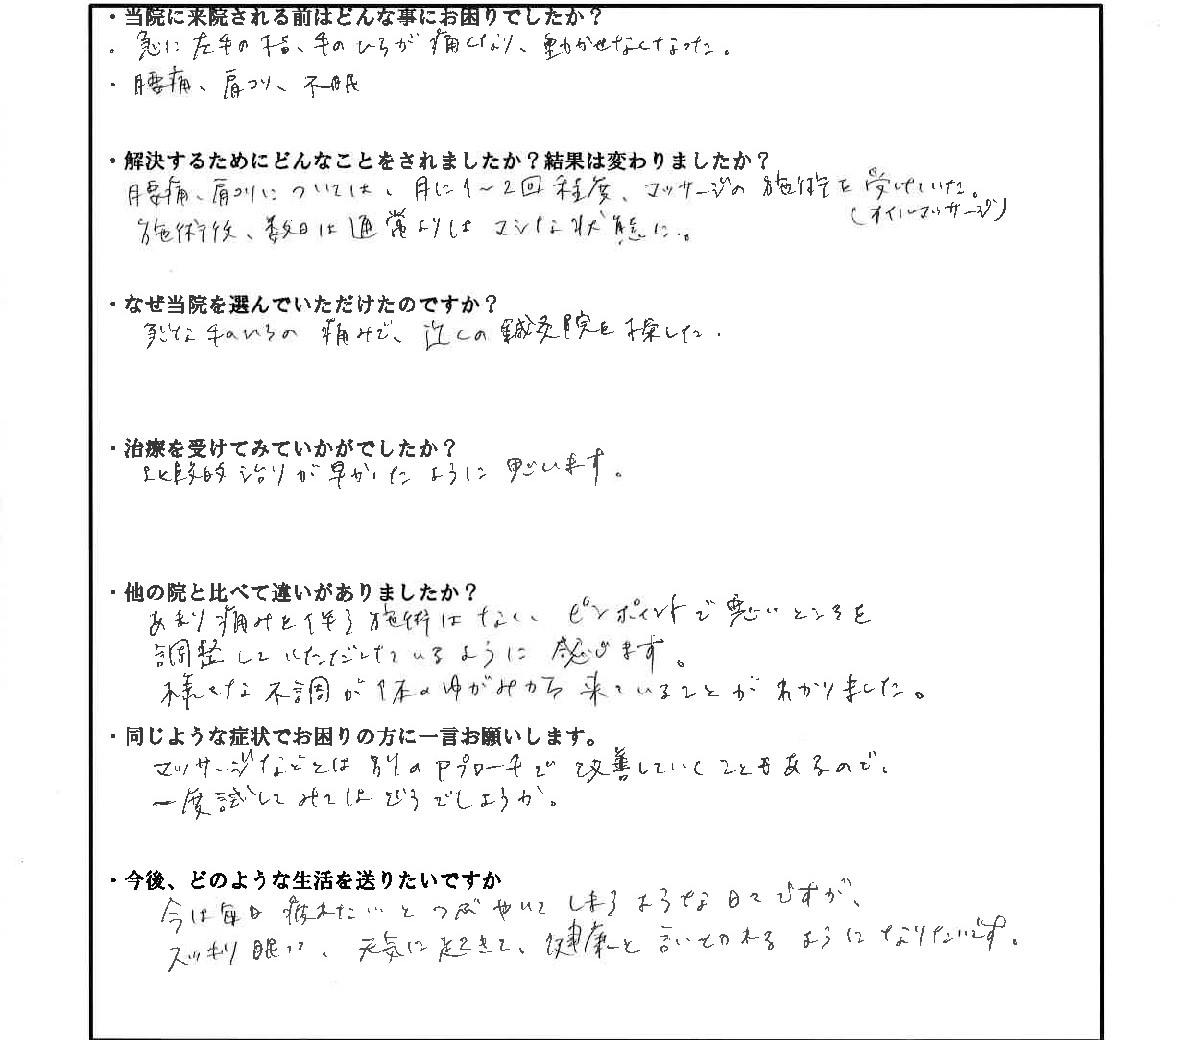 ・当院に来院される前はどんな事にお困りでしたか？
・急に左手の指、手のひらが痛くなり、動かせなくなった。
・腰痛、肩コリ、不眠
・解決するためにどんなことをされましたか？結果は変わりましたか？
腰痛、肩コリについては、月に1～2回程度、マッサージの施術を受けていた。
(オイルマッサージ)
施術後、数日は通常よりはマシな状態に。
・なぜ当院を選んでいただけたのですか？
急な手のひらの痛みで、近くの鍼灸院を探した.
・治療を受けてみていかがでしたか？
比較的治りが早かったように思います。
・他の院と比べて違いがありましたか？
あまり痛みを伴う施術はない、ピンポイントで悪いところを
調整していただけているように感じます。
様々な不調が体のゆがみから来ていることがわかりました。
・同じような症状でお困りの方に一言お願いします。
マッサージなどとは別のアプローチで改善していくこともあるので、
一度試してみてはどうでしょうか。
・今後、どのような生活を送りたいですか
今は毎日疲れたいとつぶやいてしまうような日々ですが、
スッキリ眠って、元気に起きて、健康と言いきれるようになりたいです。